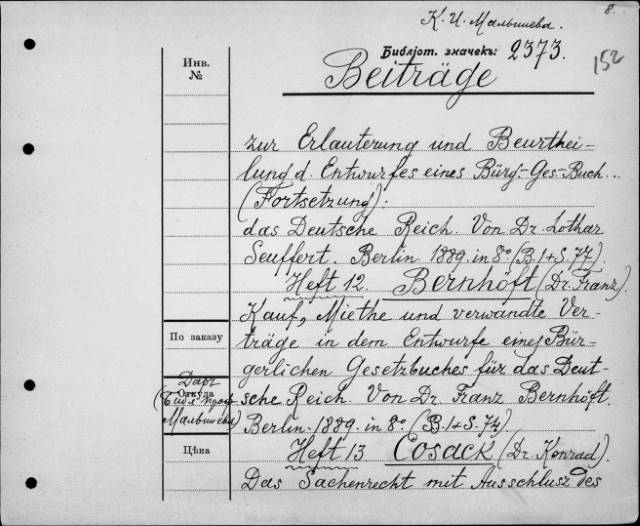 8.
К. И. Малышева.
Библіот. значекъ: 2373.
152
Инв.
№
Beiträge
zur Erlauterung und Beurthei-
lung d. Entwurfes eines Bürg.-Ges.-Buch...
(Fortsetzung):
das Deutsche Reich. Von Dr. Lothar
Seuffert. Berlin 1889. in 8° (B. 1+S. 77).
Heft 12. Bernhöft (Dr. Franz).
Kauf, Miethe und verwandte Ver-
По заказу
träge in dem Entwurfe eines Bür-
gerlichen Gesetzbuches für das Deut-
Даръ
Откуда
(Библ. проф.
Малышева)
sche Reich. Von Dr. Franz Bernhöft.
Berlin. 1889. in 8° (B. 1+S. 74).
Цѣна
Heft 13 Cosack (Dr. Konrad).
Das Sachenrecht mit Ausschlusz des